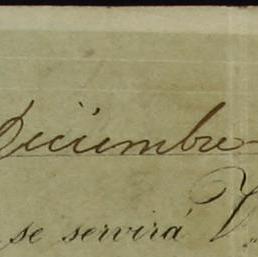 Diciembre
se servirá V.